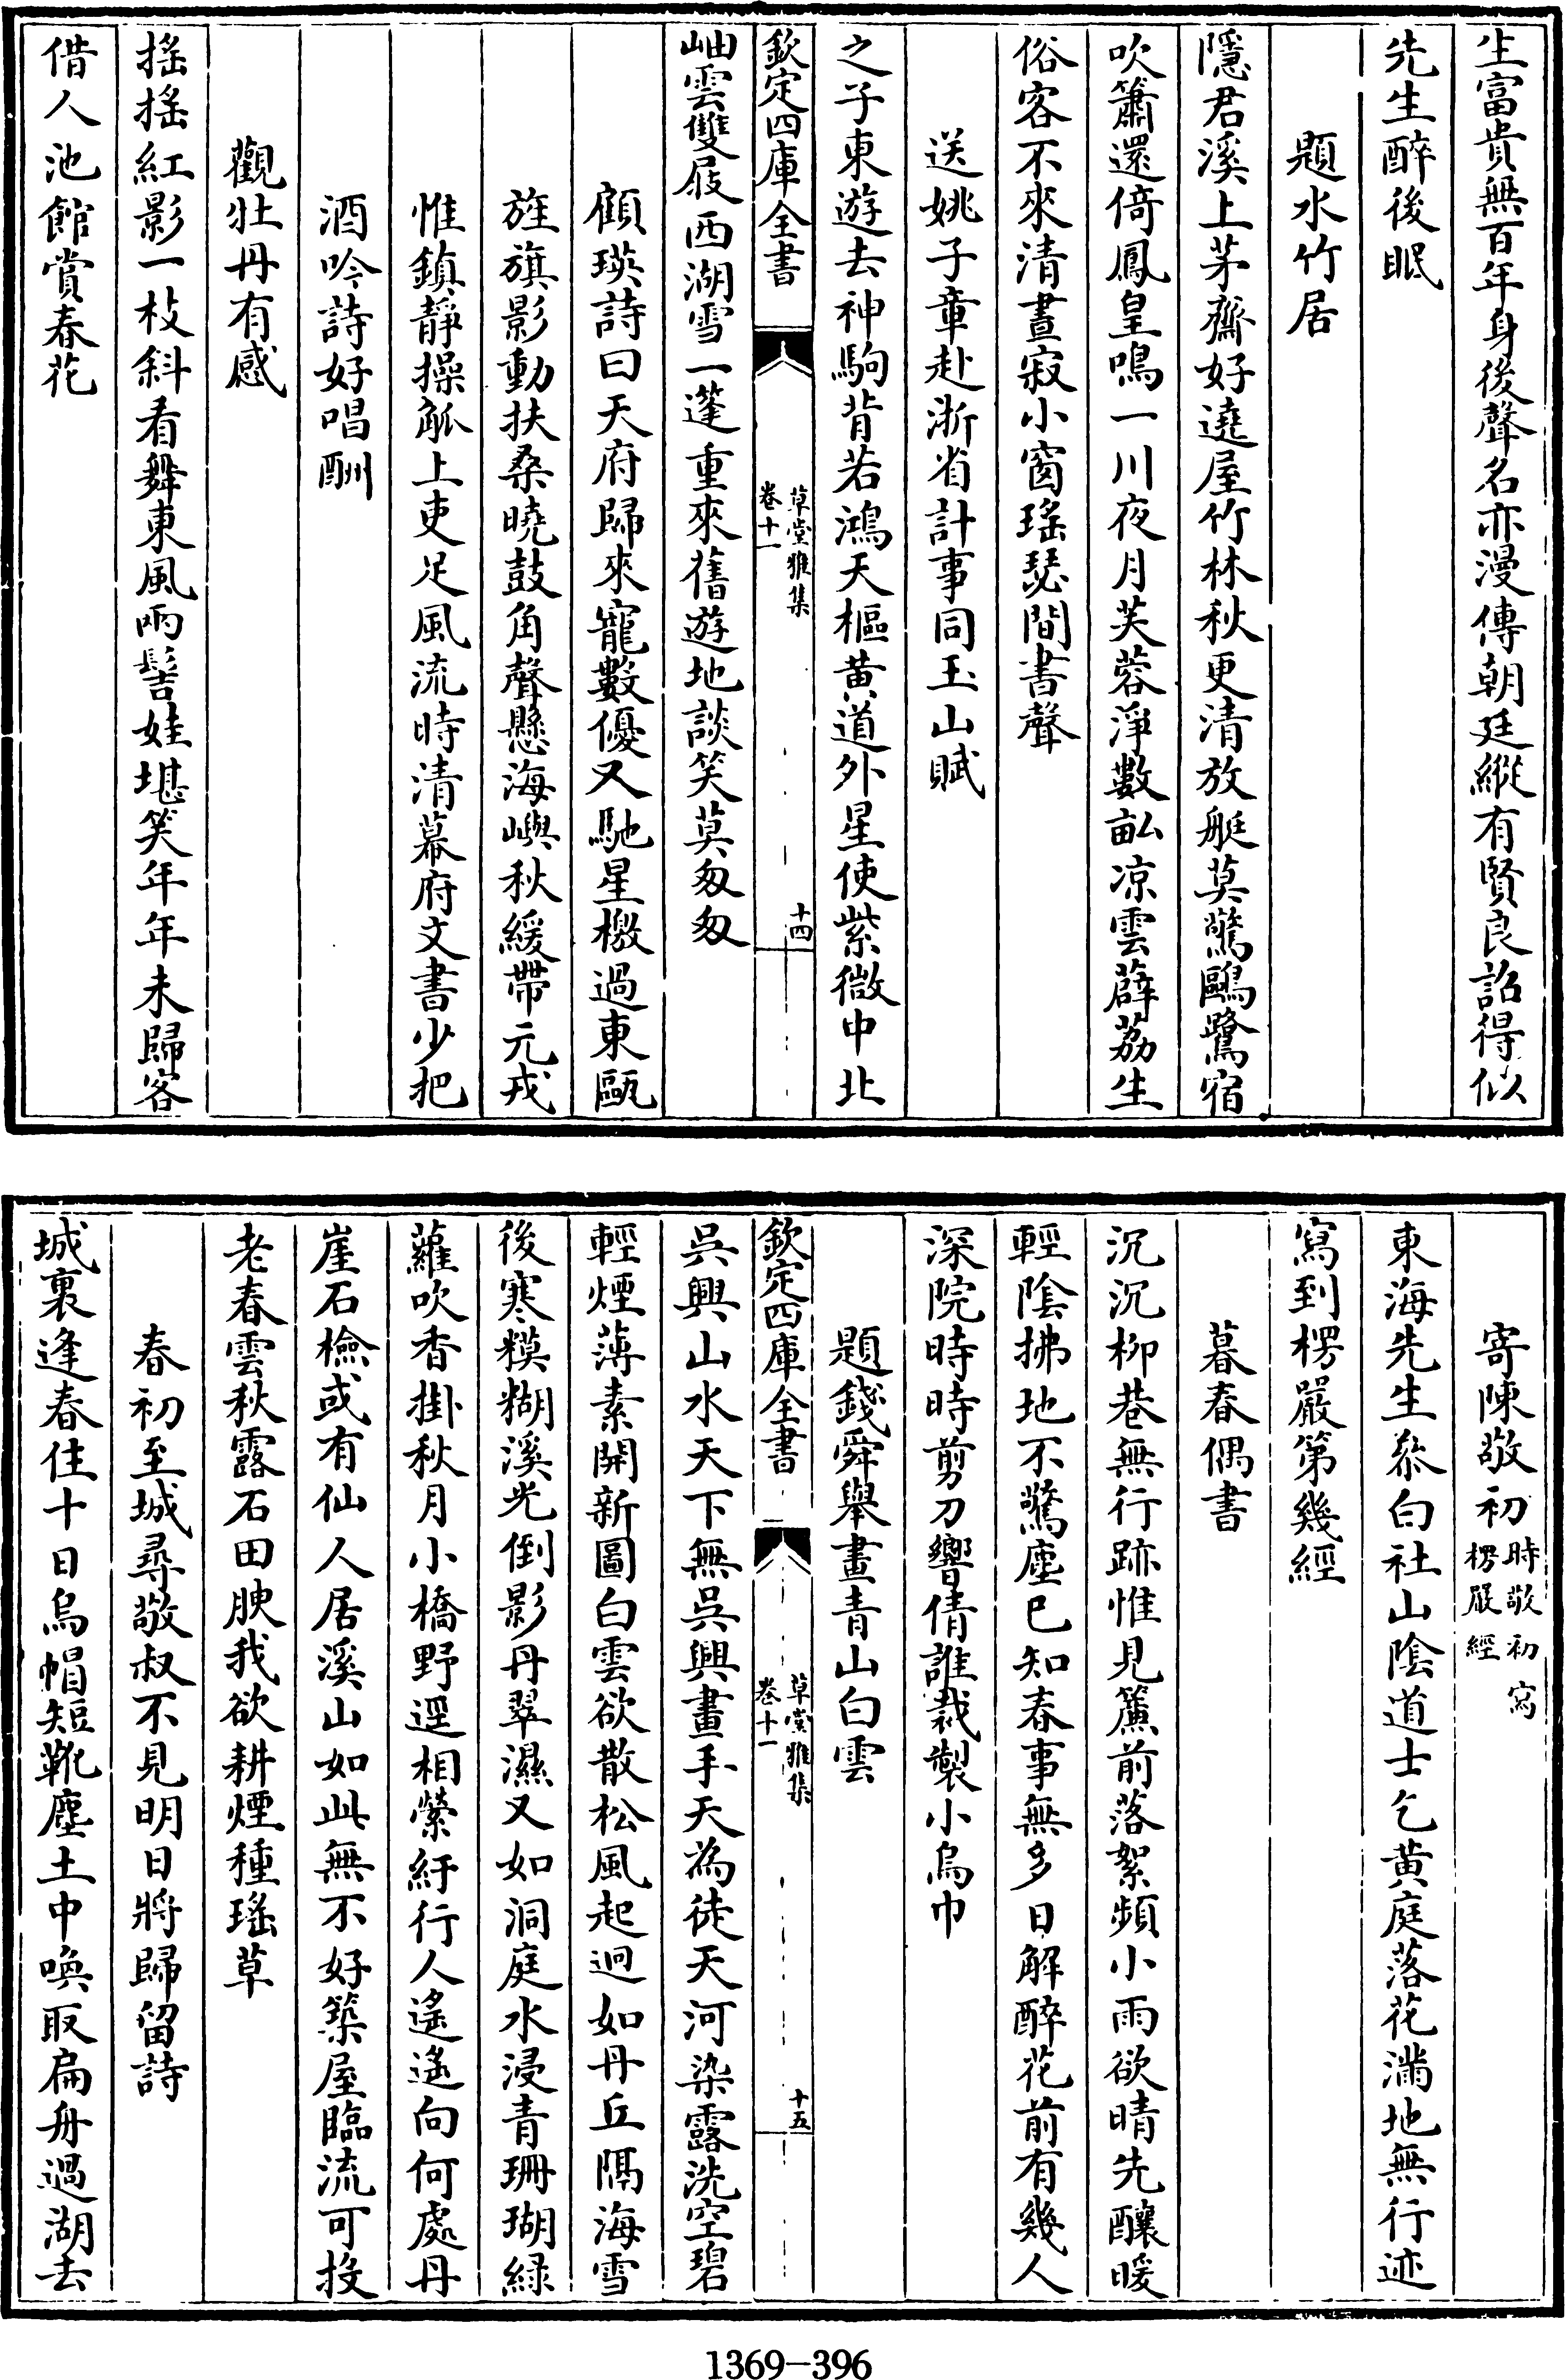 生富貴無百年身後聲名亦漫傳朝廷縱有賢良詔得似
先生醉後眠
題水竹居
隱君溪上茅齋好遶屋竹林秋更清放艇莫驚鷗鷺宿
吹簫還倚鳳皇鳴一川夜月芙蓉淨數畝凉雲薜荔生
俗客不來清晝寂小窗瑤瑟間書聲
送姚子章赴浙省計事同玉山賦
之子東遊去神駒背若鴻天樞黄道外星使紫微中北
欽定四庫全書
草堂雅集
卷十一
十四
岫雲雙屐西湖雪一篷重來舊遊地談笑莫匆匆
顧瑛詩曰天府歸來寵數優又馳星檄過東甌
旌旗影動扶桑曉鼓角聲懸海嶼秋緩帶元戎
惟鎮靜操觚上吏足風流時清幕府文書少把
酒吟詩好唱酬
觀牡丹有感
揺揺紅影一枝斜看舞東風兩髻娃堪笑年年未歸客
借人池館賞春花
寄陳敬初時敬初寫
楞嚴經
東海先生叅白社山陰道士乞黄庭落花滿地無行迹
寫到楞嚴第幾經
暮春偶書
沉沉柳巷無行跡惟見簾前落絮頻小雨欲晴先釀暖
輕陰拂地不驚塵已知春事無多日解醉花前有幾人
深院時時剪刀響倩誰裁製小烏巾
題錢舜舉畫青山白雲
欽定四庫全書
草堂雅集
卷十一
十五
吳興山水天下無吳興畫手天為徒天河染露洗空碧
輕煙薄素開新圖白雲欲散松風起迥如丹丘隔海雪
後寒糢糊溪光倒影丹翠濕又如洞庭水浸青珊瑚緑
蘿吹香掛秋月小橋野逕相縈紆行人遙遙向何處丹
崖石檢或有仙人居溪山如此無不好築屋臨流可投
老春雲秋露石田腴我欲耕煙種瑤草
春初至城尋敬叔不見明日將歸留詩
城裏逢春住十日烏帽短靴塵土中喚取扁舟過湖去
1369-396